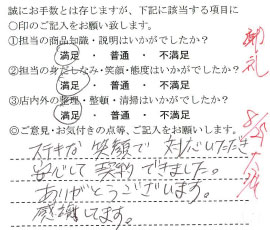 誠にお手数とは存じますが、下記に該当する項目に
○印のご記入をお願い致します。
①担当の商品知識・説明はいかがでしたか？
満足 ・ 普通 ・ 不満足
②担当の身だしなみ・笑顔・態度はいかがでしたか？
満足 ・ 普通 ・ 不満足
③店内外の整理・整頓・清掃はいかがでしたか？
満足 ・ 普通 ・ 不満足
◎ご意見・お気付きの点等、ご記入をお願いします。
ステキな笑顔で 対応いただき
安心して 契約できました。
ありがとうございます。
感謝してます。
御礼